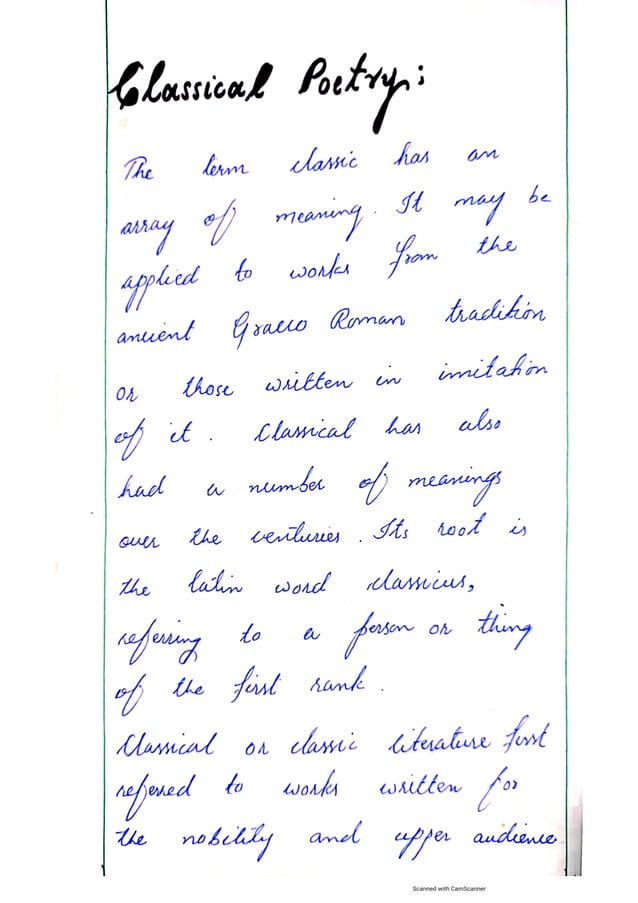 Classical Poetry:
The term classic has an
array of meaning. It may be
applied to works from the
ancient Graeco Roman tradition
or those written in imitation
of it. Classical has also
had a number of meanings
over the centuries. Its root is
the latin word classicus,
referring to a person or thing
of the first rank.
Classical or classic literature first
referred to works written for
the nobility and upper audience.
Scanned with CamScanner